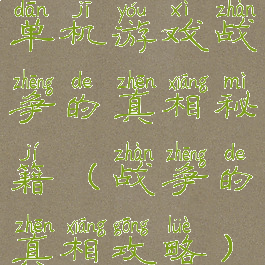 dān jī yóu xì zhàn
单机游戏战
zhēng de zhēn xiāng mì
争的真相秘
jí zhàn zhēng de
籍（战争的
zhēn xiāng gōng lüè
真相攻略）